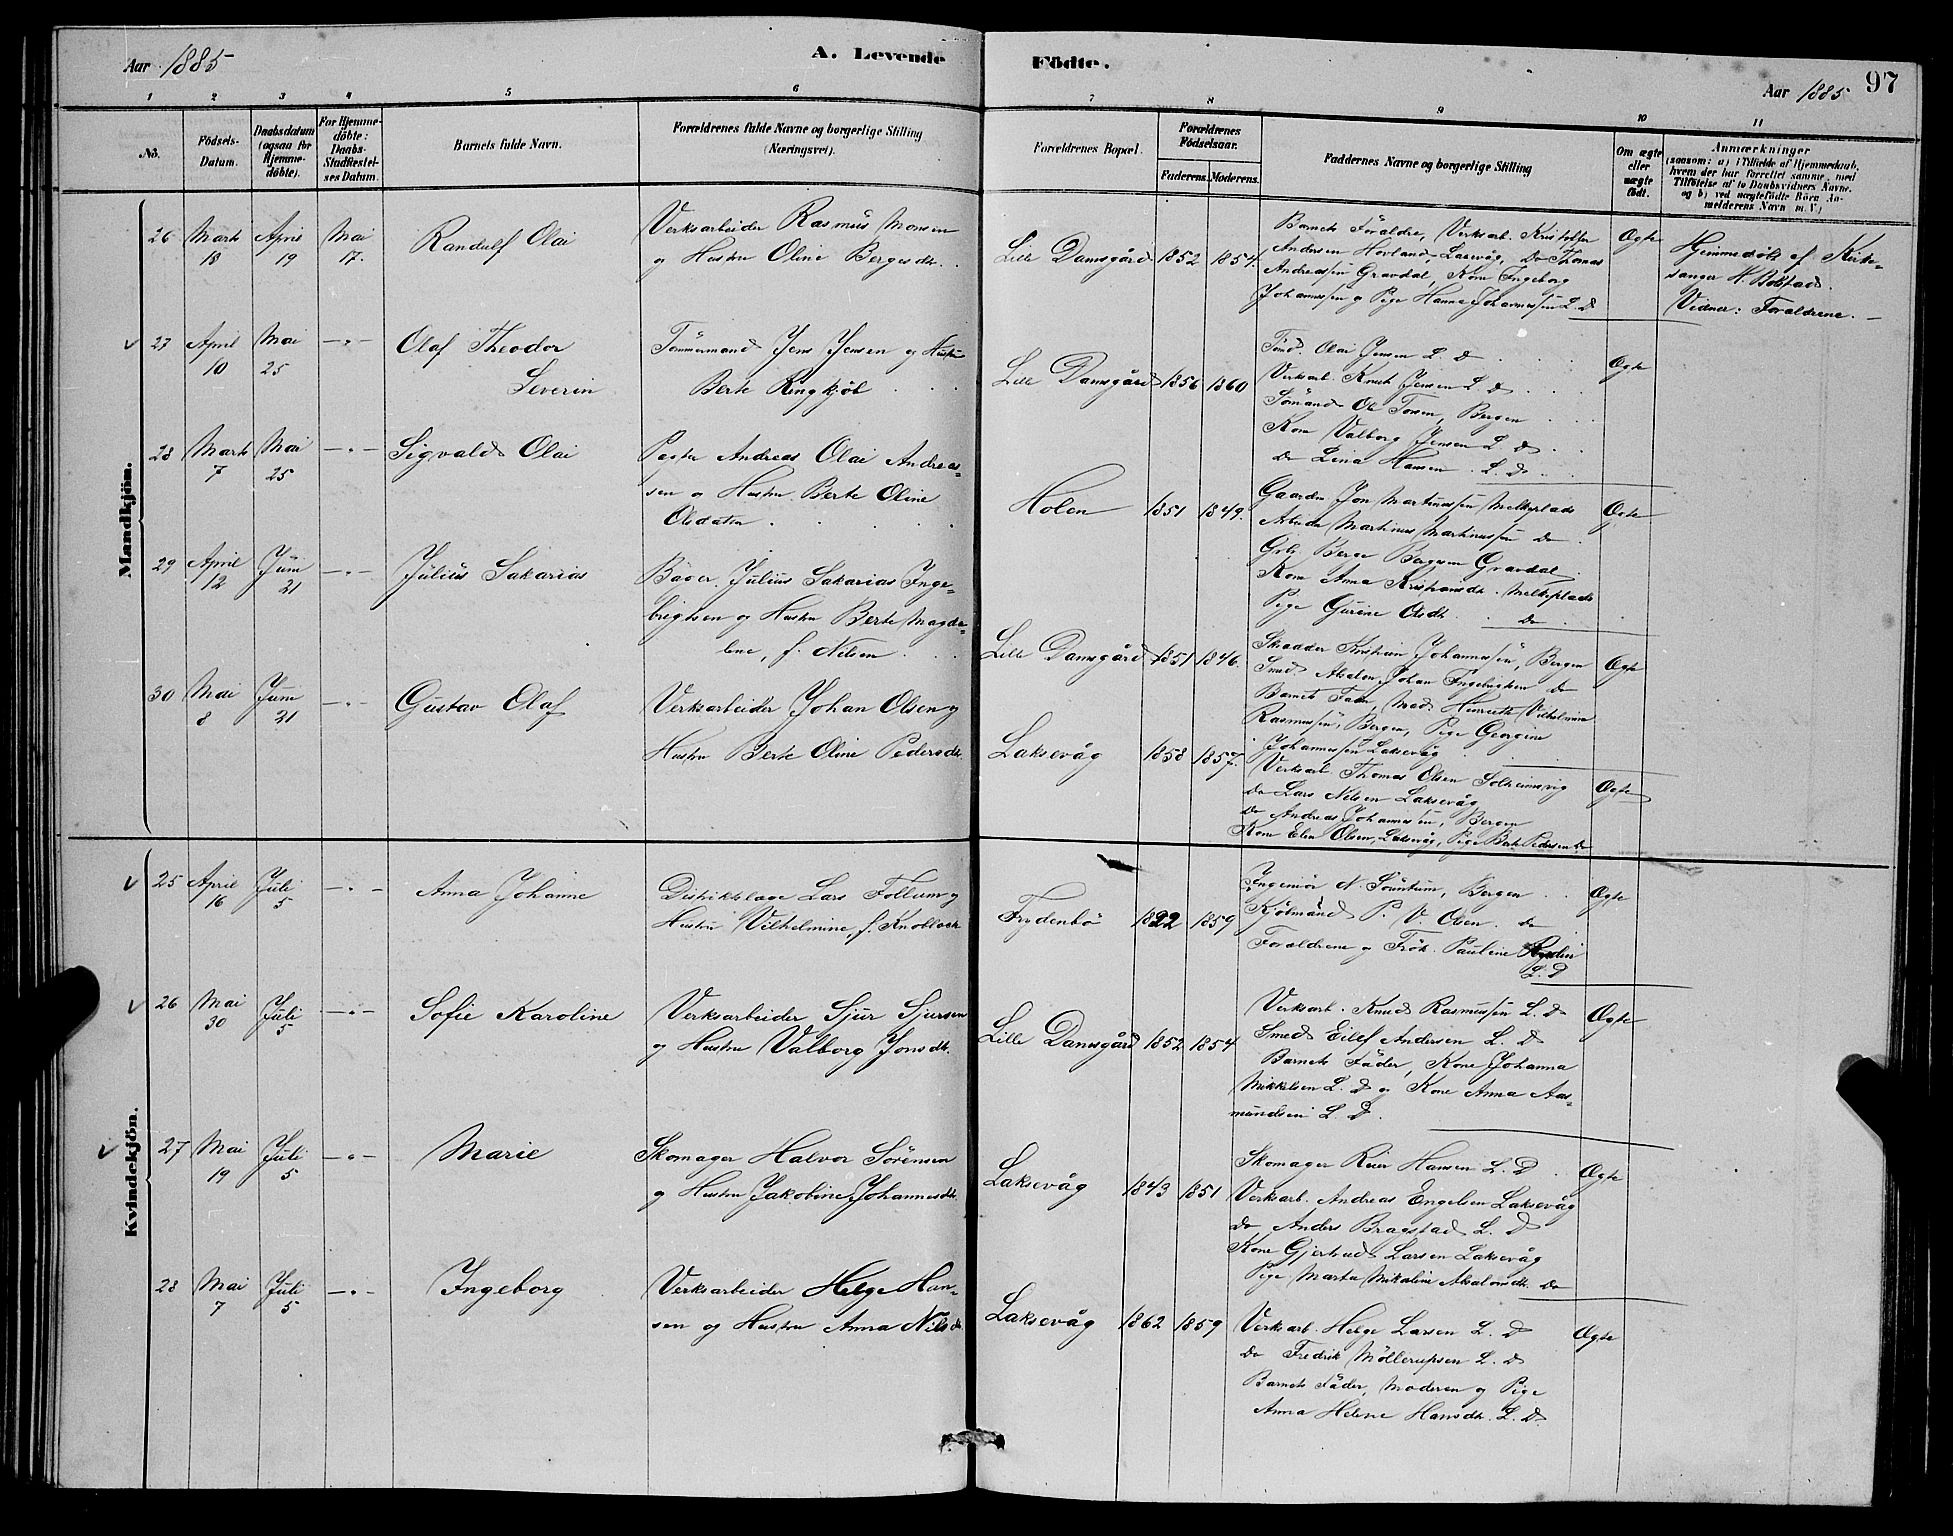 Aar 1885
A. Levende
Födte.
Aar 1885
97
1 2 3 4 5 6 7 8 9 10 11
No.
Födsels-
Datum.
Daabsdatum
(ogsaa for
Hjemme-
döbte).
For Hjemme-
döbte:
Daabs-
Stadfæstel-
ses Datum.
Barnets fulde Navn.
Forældrenes fulde Navne og borgerlige Stilling
(Næringsvei).
Forældrenes Bopæl.
Forældrenes
Födselsaar.
Faderens. Moderens.
Faddernes Navne og borgerlige Stilling
Om ægte
eller
uægte
födt.
Anmærkninger
(saasom: a) i Tilfælde af Hjemmedaab,
hvem der har forrettet samme, med
Tilföielse af to Daabsvidners Navne,
og b) ved uægtefödte Börn An-
melderens Navn m. V.)
Mandkjön.
26 Marts 18 April 19 Mai 17.
Randulf Olai
Verksarbeider Rasmus Monsen
og Hustru Oline Bergesdtr.
Lille Damsgård 1852 1854.
Barnets Forældre, Verksarb. Kristoffer
Andersen Hovland, Laksevåg, Do Thomas
Andreassen Gravdal, Kone Ingeborg
Johannessen og Pige Hanna Johannessen L. D
Ægte
Hjemmedöbt af Kirke-
sanger H. Bolstad.
Vidner: Forældrene. —
27 April 10 Mai 25 — " —
Olaf Theodor
Severin
Tömmermand Jens Jensen og Hustru
Berte Ringkjöb
Lille Damsgård 1856 1860
Tömd. Olai Jensen L. D
Verksarb. Knut Jensen L. D
Sömand Ol. Bergen
Kone Valborg Jensen L. D
Do Lina Hansen L. D
Ægte
28 Marts 7 Mai 25 — " —
Sigvald Olai
Andreas Olai Andreas-
sen og Hustru Berte Oline
Olsdatter
Holen 1851 1849.
Gaardm. Jon Martinussen Melkeplads
Arbeider Martinus Martinussen Do
Grb. Berge Bergesen Gravdal
Kone Anna Kristiansdtr. Melkeplads
Pige Gurine Olsdtr. Do
Ægte
29 April 12 Juni 21 — " —
Julius Sakarias
Bager Julius Sakarias Inge-
brigtsen og Hustru Berte Magda-
lene, f. Nilsen
Lille Damsgård 1851 1846.
Skrædder Kristian Johannessen, Bergen
Smed Absalon Johan Ingebrigtsen Do
Barnets Fader, Mad. Henriette Vilhelmine
Rasmussen, Bergen, Pige Georgine
Johannessen Laksevåg
Ægte
30 Mai 8 Juni 21 — " —
Gustav Olaf
Verksarbeider Johan Olsen og
Hustru Berte Oline Pedersdtr.
Laksevåg 1858 1857.
Verksarb. Thomas Olsen Solheimsvig
Do Lars Nilsen Laksevåg
Do Andreas Johannessen, Bergen
Kone Elen Olsen, Laksevåg, Pige Berte Pedersen Do
Ægte
Kvindekjön.
25 April 16 Juli 5 — " —
Anna Johanne
Distriktslæge Lars Follum og
Hustru Vilhelmine, f. Knobloch
Frydenbö 1822 1859
Ingeniör N. Sönntum, Bergen
Kjöbmand P. V. Olsen Do
Forældrene og Frök. Pauline
L. D
Ægte
26 Mai 30 Juli 5 — " —
Sofie Karoline
Verksarbeider Sjur Sjursen
og Hustru Valborg Jonsdtr.
Lille Damsgård 1852 1854
Verksarb. Knud Rasmussen L. D
Smed Eilef Andersen L. D
Barnets Fader, Kone Johanna
Mikkelsen L. D og Kone Anna Aas-
mundsen L. D.
Ægte
27 Mai 19 Juli 5 — " —
Marie
Skomager Halvor Sörensen
og Hustru Jakobine Johannesdtr.
Laksevåg 1843 1851
Skomager Reier Hansen L. D
Verksarb. Andreas Engelsen Laksevåg
Do Anders Bragstad L. D
Kone Gjertrud Larsen Laksevåg
Pige Marta Mikaline Absalonsdtr. Do
Ægte
28 Mai 7 Juli 5 — " —
Ingeborg
Verksarbeider Helge Han-
sen og Hustru Anna Nilsdtr.
Laksevåg 1862 1859
Verksarb. Helge Larsen L. D
Do Fredrik Möllerupsen L. D
Barnets Fader, Moderen og Pige
Anna Helene Hansdtr. L. D
Ægte